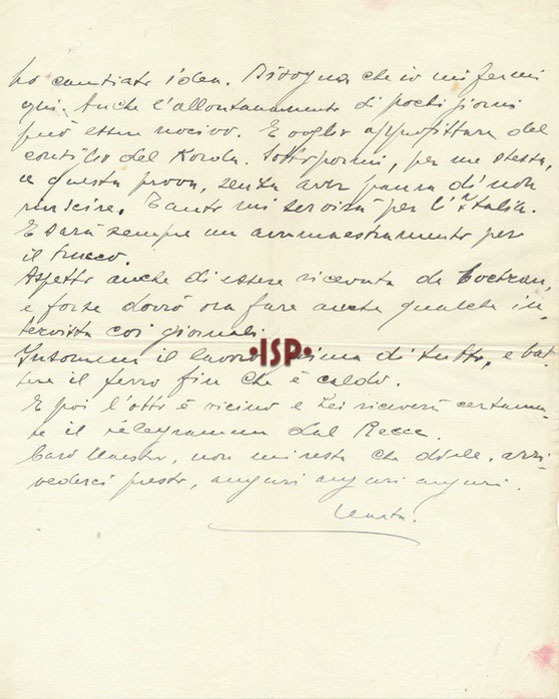 ho cambiato idea. Bisogna che io mi fermi
qui. Anche l'allontanamento di pochi giorni
può esser nocivo. E voglio approfittare del
consiglio del Korda. Sottopormi, per me stessa,
a questa prova, senza aver paura di non
riuscire. Tanto mi servirà per l'Italia.
E sarà sempre un ammaestramento per
il trucco.
Aspetto anche di essere ricevuta da Cochran,
e forse dovrò ora fare anche qualche in-
tervista coi giornali.
Insomma il lavoro prima di tutto, e bat-
tere il ferro fin che è caldo.
E poi l'otto è vicino e Lei riceverà certamen-
te il telegramma dal Recce.
Caro Maestro, non mi resta che dirle, arri-
vederci presto, auguri auguri auguri.
Marta.
•ISP•